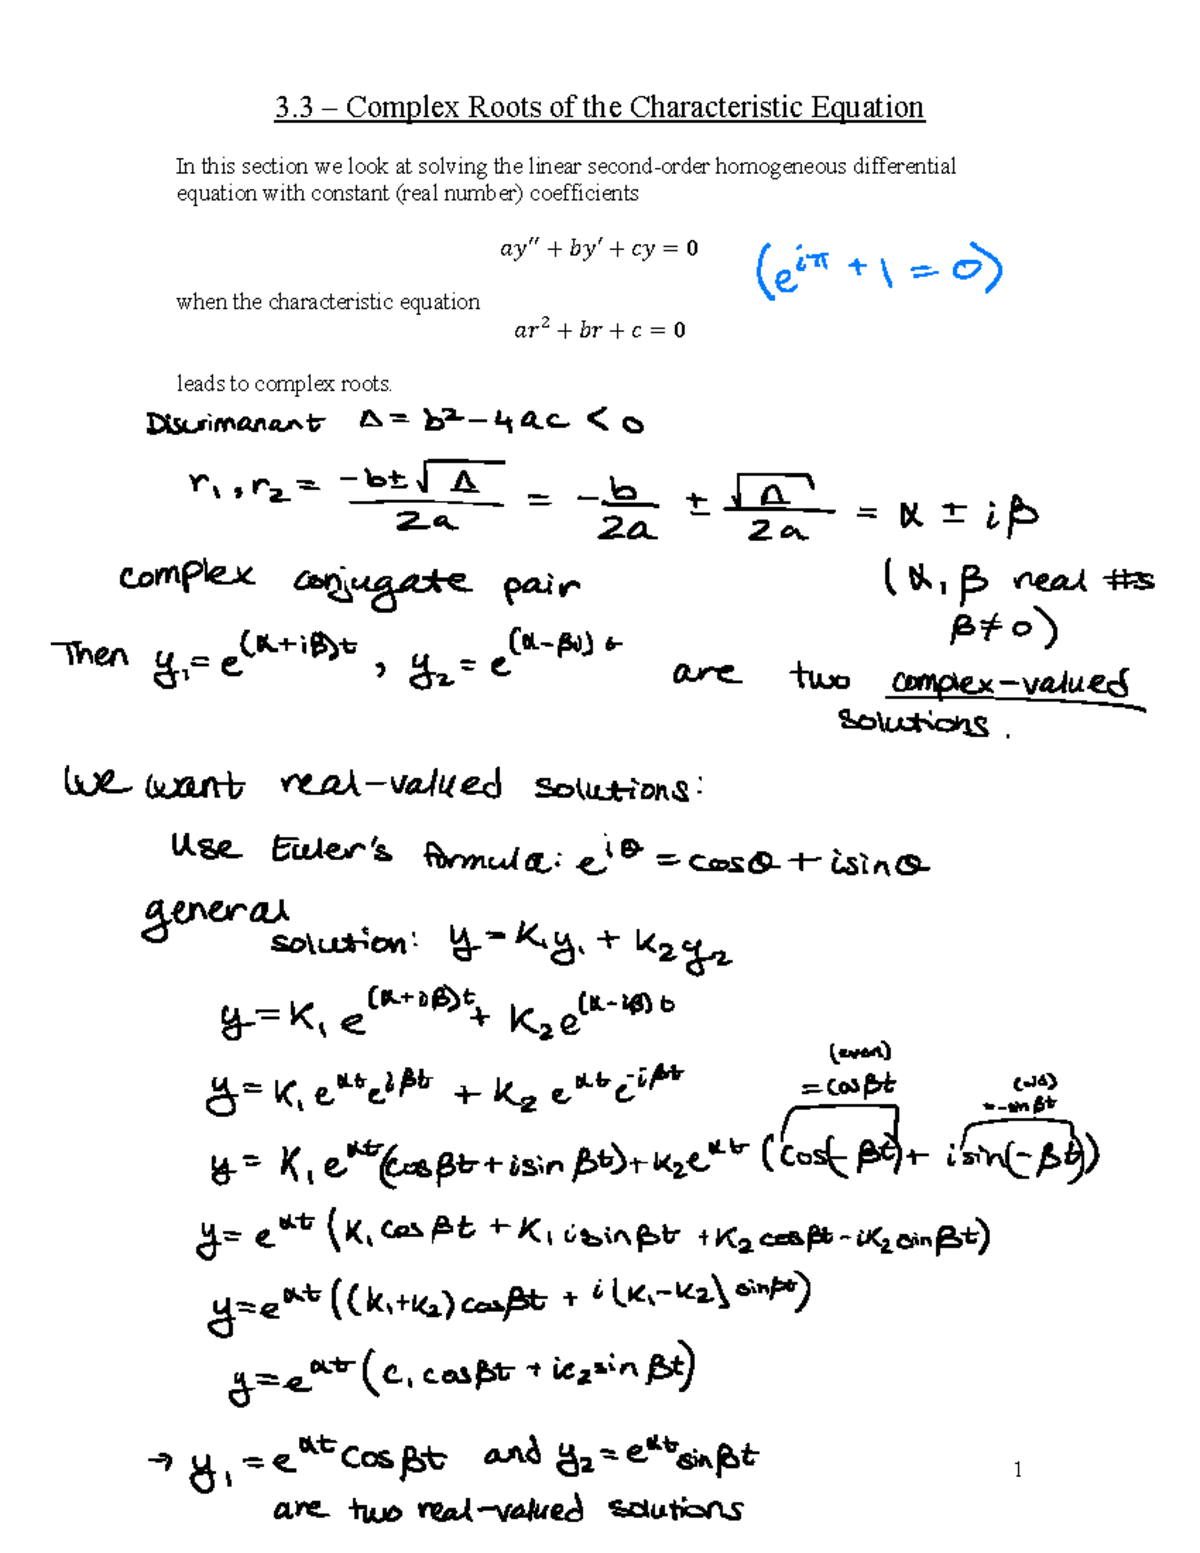 3.3 – Complex Roots of the Characteristic Equation
In this section we look at solving the linear second-order homogeneous differential
equation with constant (real number) coefficients
ay″ + by′ + cy = 0
(e^{iπ} + 1 = 0)
when the characteristic equation
ar² + br + c = 0
leads to complex roots.
Discrimanant Δ = b² - 4ac < 0
r₁, r₂ = (-b ± √Δ)/2a = -b/2a ± √Δ/2a = α ± iβ
complex conjugate pair (α, β real #s
β ≠ 0)
Then y₁ = e^{(α+iβ)t}, y₂ = e^{(α-βi)t} are two complex-valued
solutions.
We want real-valued solutions:
Use Euler's formula: e^{iθ} = cosθ + isinθ
general
solution: y = K₁y₁ + K₂y₂
y = K₁e^{(α+iβ)t} + K₂e^{(α-iβ)t}
(even)
y = K₁e^{αt}e^{iβt} + K₂e^{αt}e^{-iβt} = cosβt (odd)
= -sinβt
y = K₁e^{αt}(cosβt + isinβt) + K₂e^{αt}(cos(-βt) + isin(-βt))
y = e^{αt}(K₁cosβt + K₁isinβt + K₂cosβt - iK₂sinβt)
y = e^{αt}((K₁+K₂)cosβt + i(K₁-K₂)sinβt)
y = e^{αt}(c₁cosβt + ic₂sinβt)
→ y₁ = e^{αt}cosβt and y₂ = e^{αt}sinβt
1
are two real-valued solutions